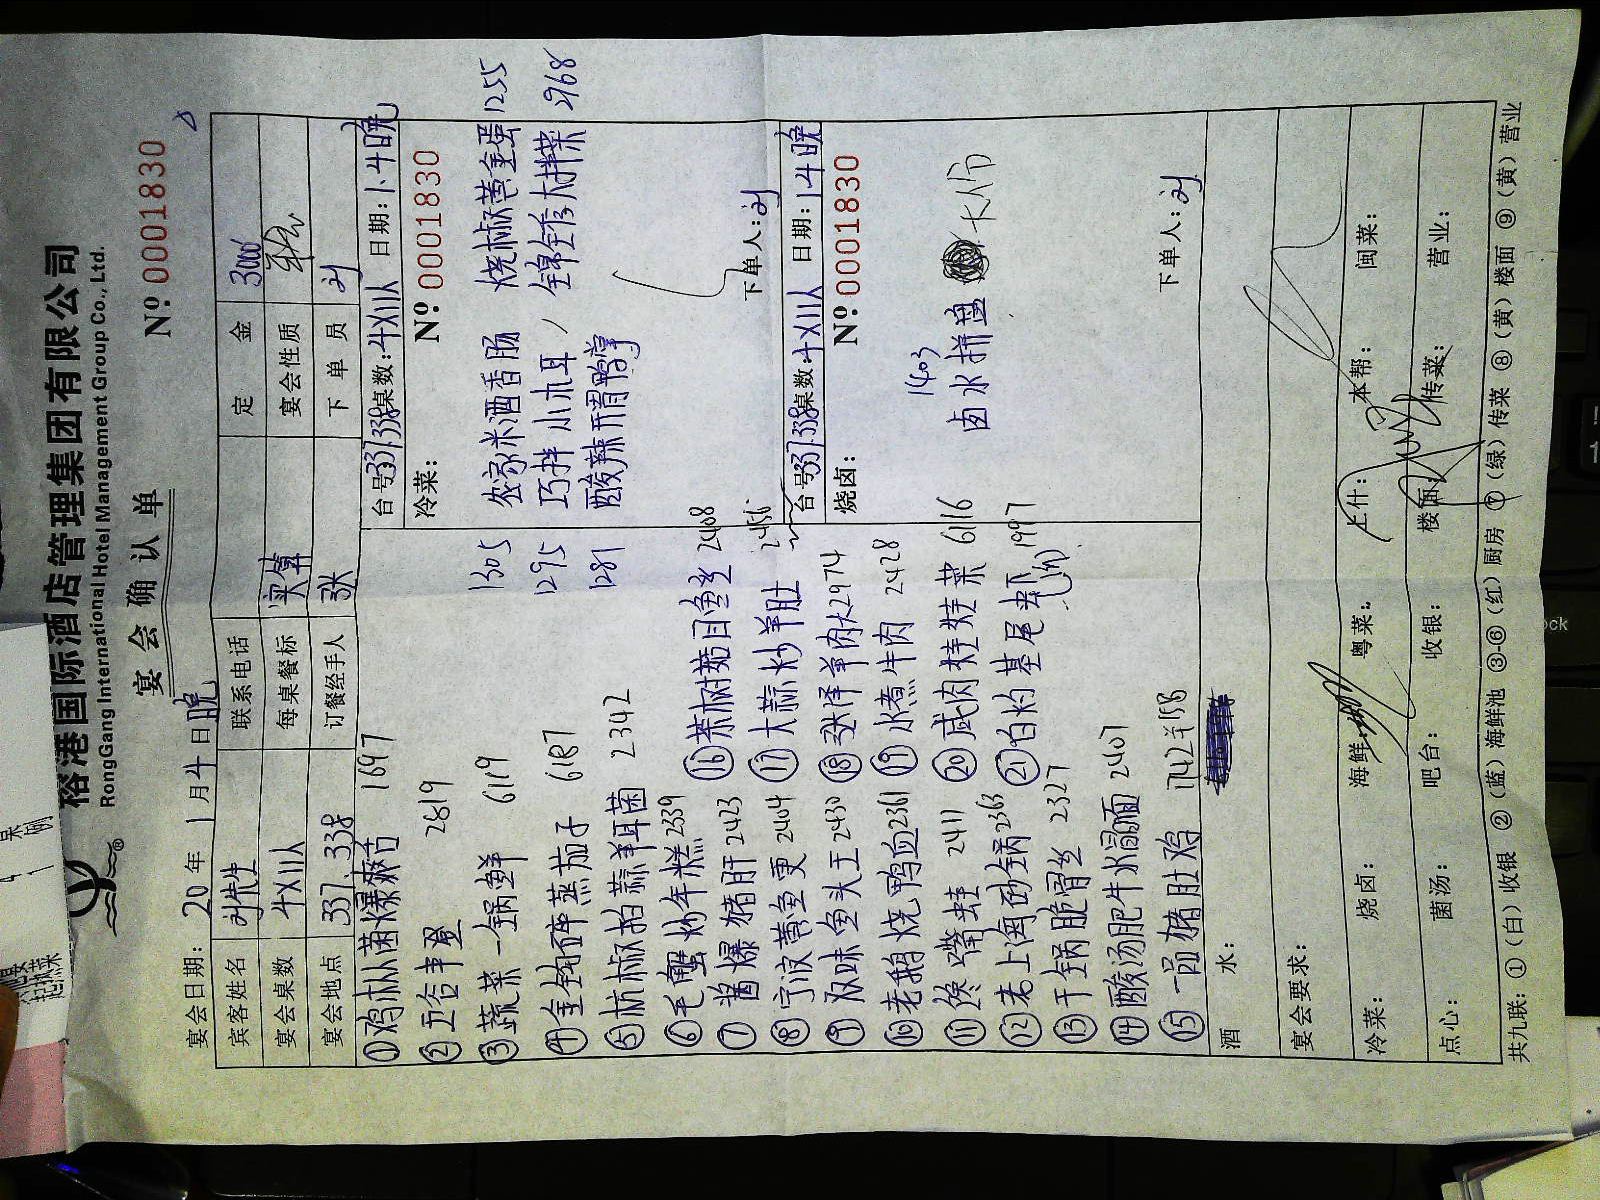 榕港国际酒店管理集团有限公司
RongGang International Hotel Management Group Co., Ltd.
宴会确认单
№ 0001830
宴会日期: 20 年 1 月 4 日 晚
宾客姓名 刘先生 联系电话 定金 3000
宴会桌数 4×11人 每桌餐标 实算 宴会性质
宴会地点 337、338 订餐经手人 张 下单员 刘
①鸡枞菌爆爽舌 1697
②五谷丰登 2819
③蔬菜一锅鲜 6119
④金钩碎蒸茄子 6187
⑤杭椒拍蒜羊耳菌 2342
⑥毛蟹炒年糕 2339
⑦酱爆猪肝 2423
⑧宁波黄鱼更 2404
⑨双味鱼头王 2430
⑩老鹅烧鸭血 2361
⑪馋嘴蛙 2411
⑫老上海砂锅 2363
⑬干锅脆骨 2327
⑭酸汤肥牛水晶面 2407
⑮一品猪肚鸡 1742
⑯茶树菇目鱼 2408
⑰大蒜炒羊肚 2456
⑱张泽羊肉 2974
⑲水煮牛肉 2428
⑳咸肉娃娃菜 6116
㉑白灼基尾虾 1997
台号 337 338 桌数: 4×11人 日期: 1.4晚
冷菜: № 0001830
1305 农家米酒香肠 烧椒黄金蛋 1255
1295 巧拌小木耳 锦绣大拌菜 2968
1281 酸辣开胃鸭掌
下单人: 刘
台号 337 338 桌数: 4×11人 日期: 1.4晚
烧卤: № 0001830
1403
卤水拼盘
下单人: 刘
酒水:
宴会要求:
冷菜: 烧卤: 海鲜: 粤菜: 上什: 本帮: 闽菜:
点心: 菌汤: 吧台: 收银: 楼面: 传菜: 营业:
共九联: ①(白)收银 ②(蓝)海鲜池 ③-⑥(红)厨房 ⑦(绿)传菜 ⑧(黄)楼面 ⑨(黄)营业